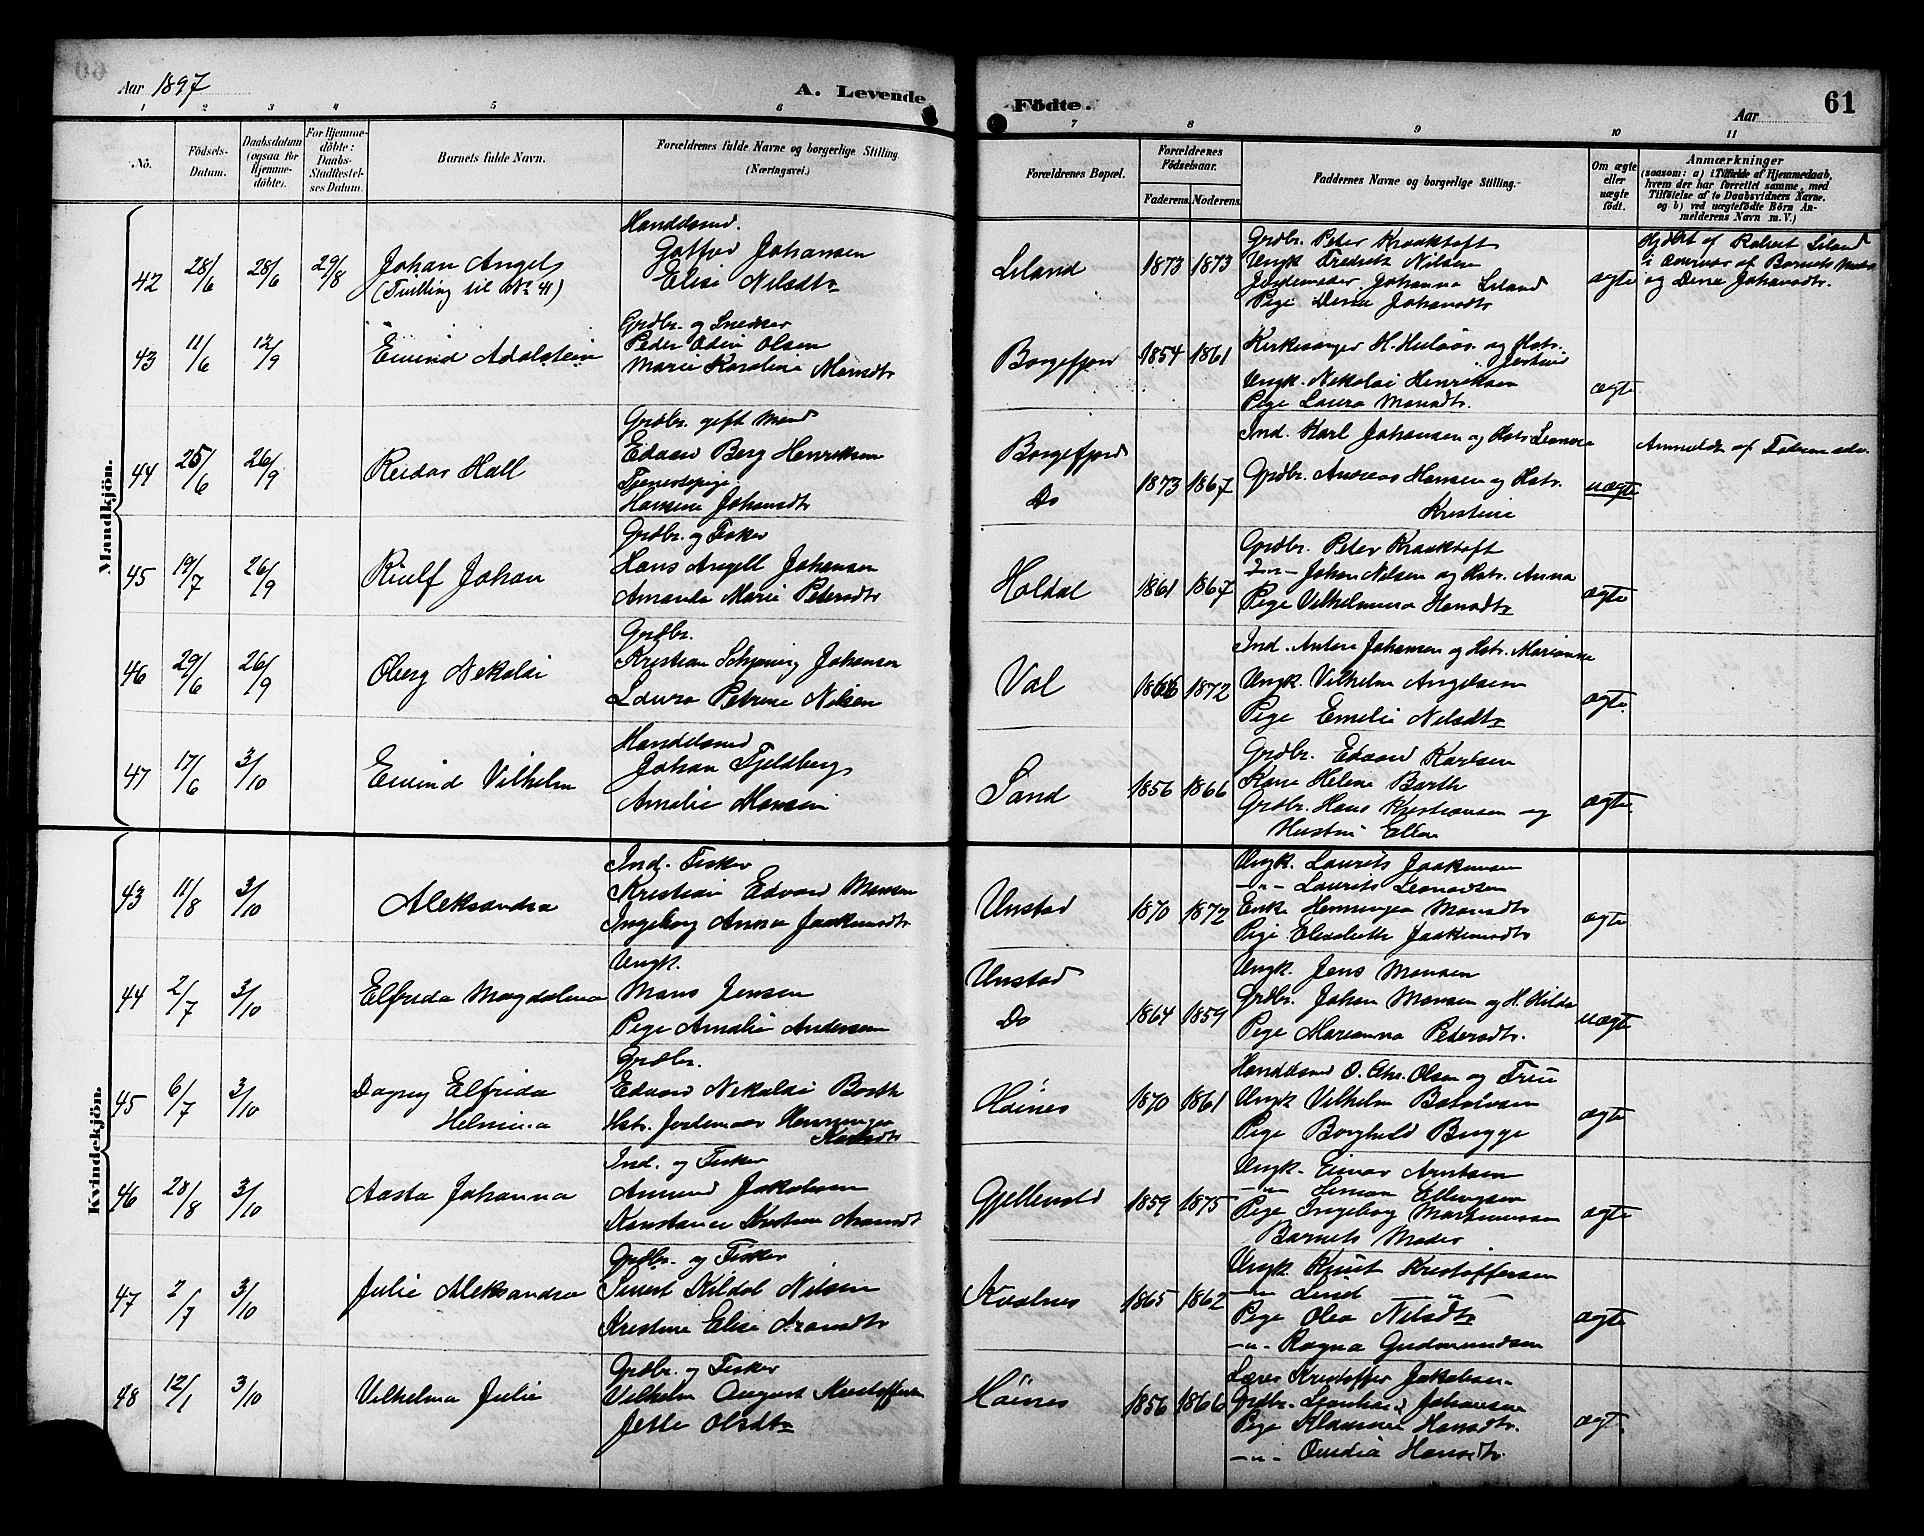 Aar 1897
A. Levende
Födte.
Aar
61
1 2 3 4 5 6 7 8 9 10 11
No.
Födsels-Datum.
Daabsdatum (ogsaa for Hjemme-döbte).
For Hjemme-döbte: Daabs-Stadfæstel-ses Datum.
Barnets fulde Navn.
Forældrenes fulde Navne og borgerlige Stilling (Næringsvei.)
Forældrenes Bopæl.
Forældrenes Födselsaar.
Faderens. Moderens.
Faddernes Navne og borgerlige Stilling.
Om ægte eller uægte födt.
Anmærkninger
(saasom: a) i Tilfælde af Hjemmedaab, hvem der har forrettet samme, med Tilföielse af to Daabsvidners Navne. og b) ved uægtefödte Börn An-melderens Navn m. V.)
Mandkjön.
42 28/6 28/6 29/8 Johan Angels
(Tvilling til No 41)
Handelsmd.
Gotfred Johansen
Elise Nilsdtr
Liland 1873 1873
Grdbr. Peter Kraaktoft
Ungk Fredrik Nilsen
Jordemoder Johanna Liland
Pige Dena Johansdtr
ægte
Hjdöbt af Robert Liland
i Overvær af Barnets Moder
og Dena Johansdtr.
43 11/6 12/9 Eivind Adalstein
Grdbr. og Snedker
Peder Odin Olsen
Marie Karoline Monsdtr
Borgefjord 1854 1861
Kirkesanger H. og Hstr.
Ungk. Nekolai Henriksen
Pige Laura Monsdtr.
ægte
44 25/6 26/9 Reidar Hall
Grdbr. gift Mand
Edvard Berg Henriksen
Tjenestepige
Hansine Johansdtr
Borgefjord
Do 1873 1867
Ind. Karl Johansen og Hstr. Leonora
Grdbr. Andreas Hansen og Hstr.
Kristine
uægte
Anmeldt af Faderen selv.
45 19/7 26/9 Riulf Johan
Grdbr. og Fisker
Hans Angell Johansen
Amanda Marie Pedersdtr
Holdal 1861 1867
Grdbr. Peter Kraaktoft
-"- Johan Nilsen og Hstr. Anna
Pige Vilhelmina Hansdtr
ægte
46 29/6 26/9 Oberg Nekolai
Grdbr.
Kristian Schjöning Johansen
Laura Petrine Nilsen
Val 1866 1872
Ind. Anton Johansen og Hstr. Marianne
Ungk. Vilhelm Angelsen
Pige Emelie Nilsdtr
ægte.
47 17/6 3/10 Eivind Vilhelm
Handelsmd
Johan Fjeldberg
Amalie Hansen
Sand 1856 1866
Grdbr. Edvard Karlsen
Kone Helene Barth
Grdbr. Hans Kristiansen og
Hustru Ellen
ægte.
Kvindekjön.
43 11/8 3/10 Aleksandra
Ind. Fisker
Kristian Edvard Monsen
Ingeborg Anna Joakimsdtr
Unstad 1870 1872
Ungk. Laurits Joakimsen
-"- Laurits Leonardsen
Enke Henningea Monsdtr
Pige Elisabeth Joakimsdtr
ægte
44 2/7 3/10 Elfrida Magdalena
Ungk.
Mons Jensen
Pige Amalie Andersen
Unstad
Do 1864 1859
Ungk. Jens Monsen
Grdbr. Johan Monsen og H. Hilda
Pige Marianna Pedersdtr.
uægte
45 6/7 3/10 Dagny Elfrida
Helmina
Grdbr.
Edvard Nekolai Barth
Hstr. Jordemoder Henningea
Karlsdtr
Höines 1870 1861
Handelsmd O. Chr. Olsen og Frue
Ungk Vilhelm
Pige Borghild Brygge
ægte
46 28/8 3/10 Aasta Johanna
Ind. og Fisker
Amund Jakobsen
Konstance Kristine
Gjellevold 1859 1875
Ungk. Einar Arntsen
-"- Simon Ellingsen
Pige Ingeborg Martinussen
Barnets Moder
ægte
47 2/7 3/10 Julie Aleksandra
Grdbr. og Fisker
Sivert Kildal Nilsen
Kristine Elise
Kvalnes 1865 1862
Ungk. Knut Kristoffersen
-"- Lind -"-
Pige Olea Nilsdtr
-"- Ragna Gudmundsen
ægte
48 12/1 3/10 Vilhelma Julie
Grdbr. og Fisker
Vilhelm August Kristoffersen
Jette Olsdtr
Höines 1856 1866
Lærer Kristoffer Jakobsen
Grdbr. Leonhard Johansen
Pige Klausine Hansdtr.
-"- Ovidia Hansdtr.
ægt